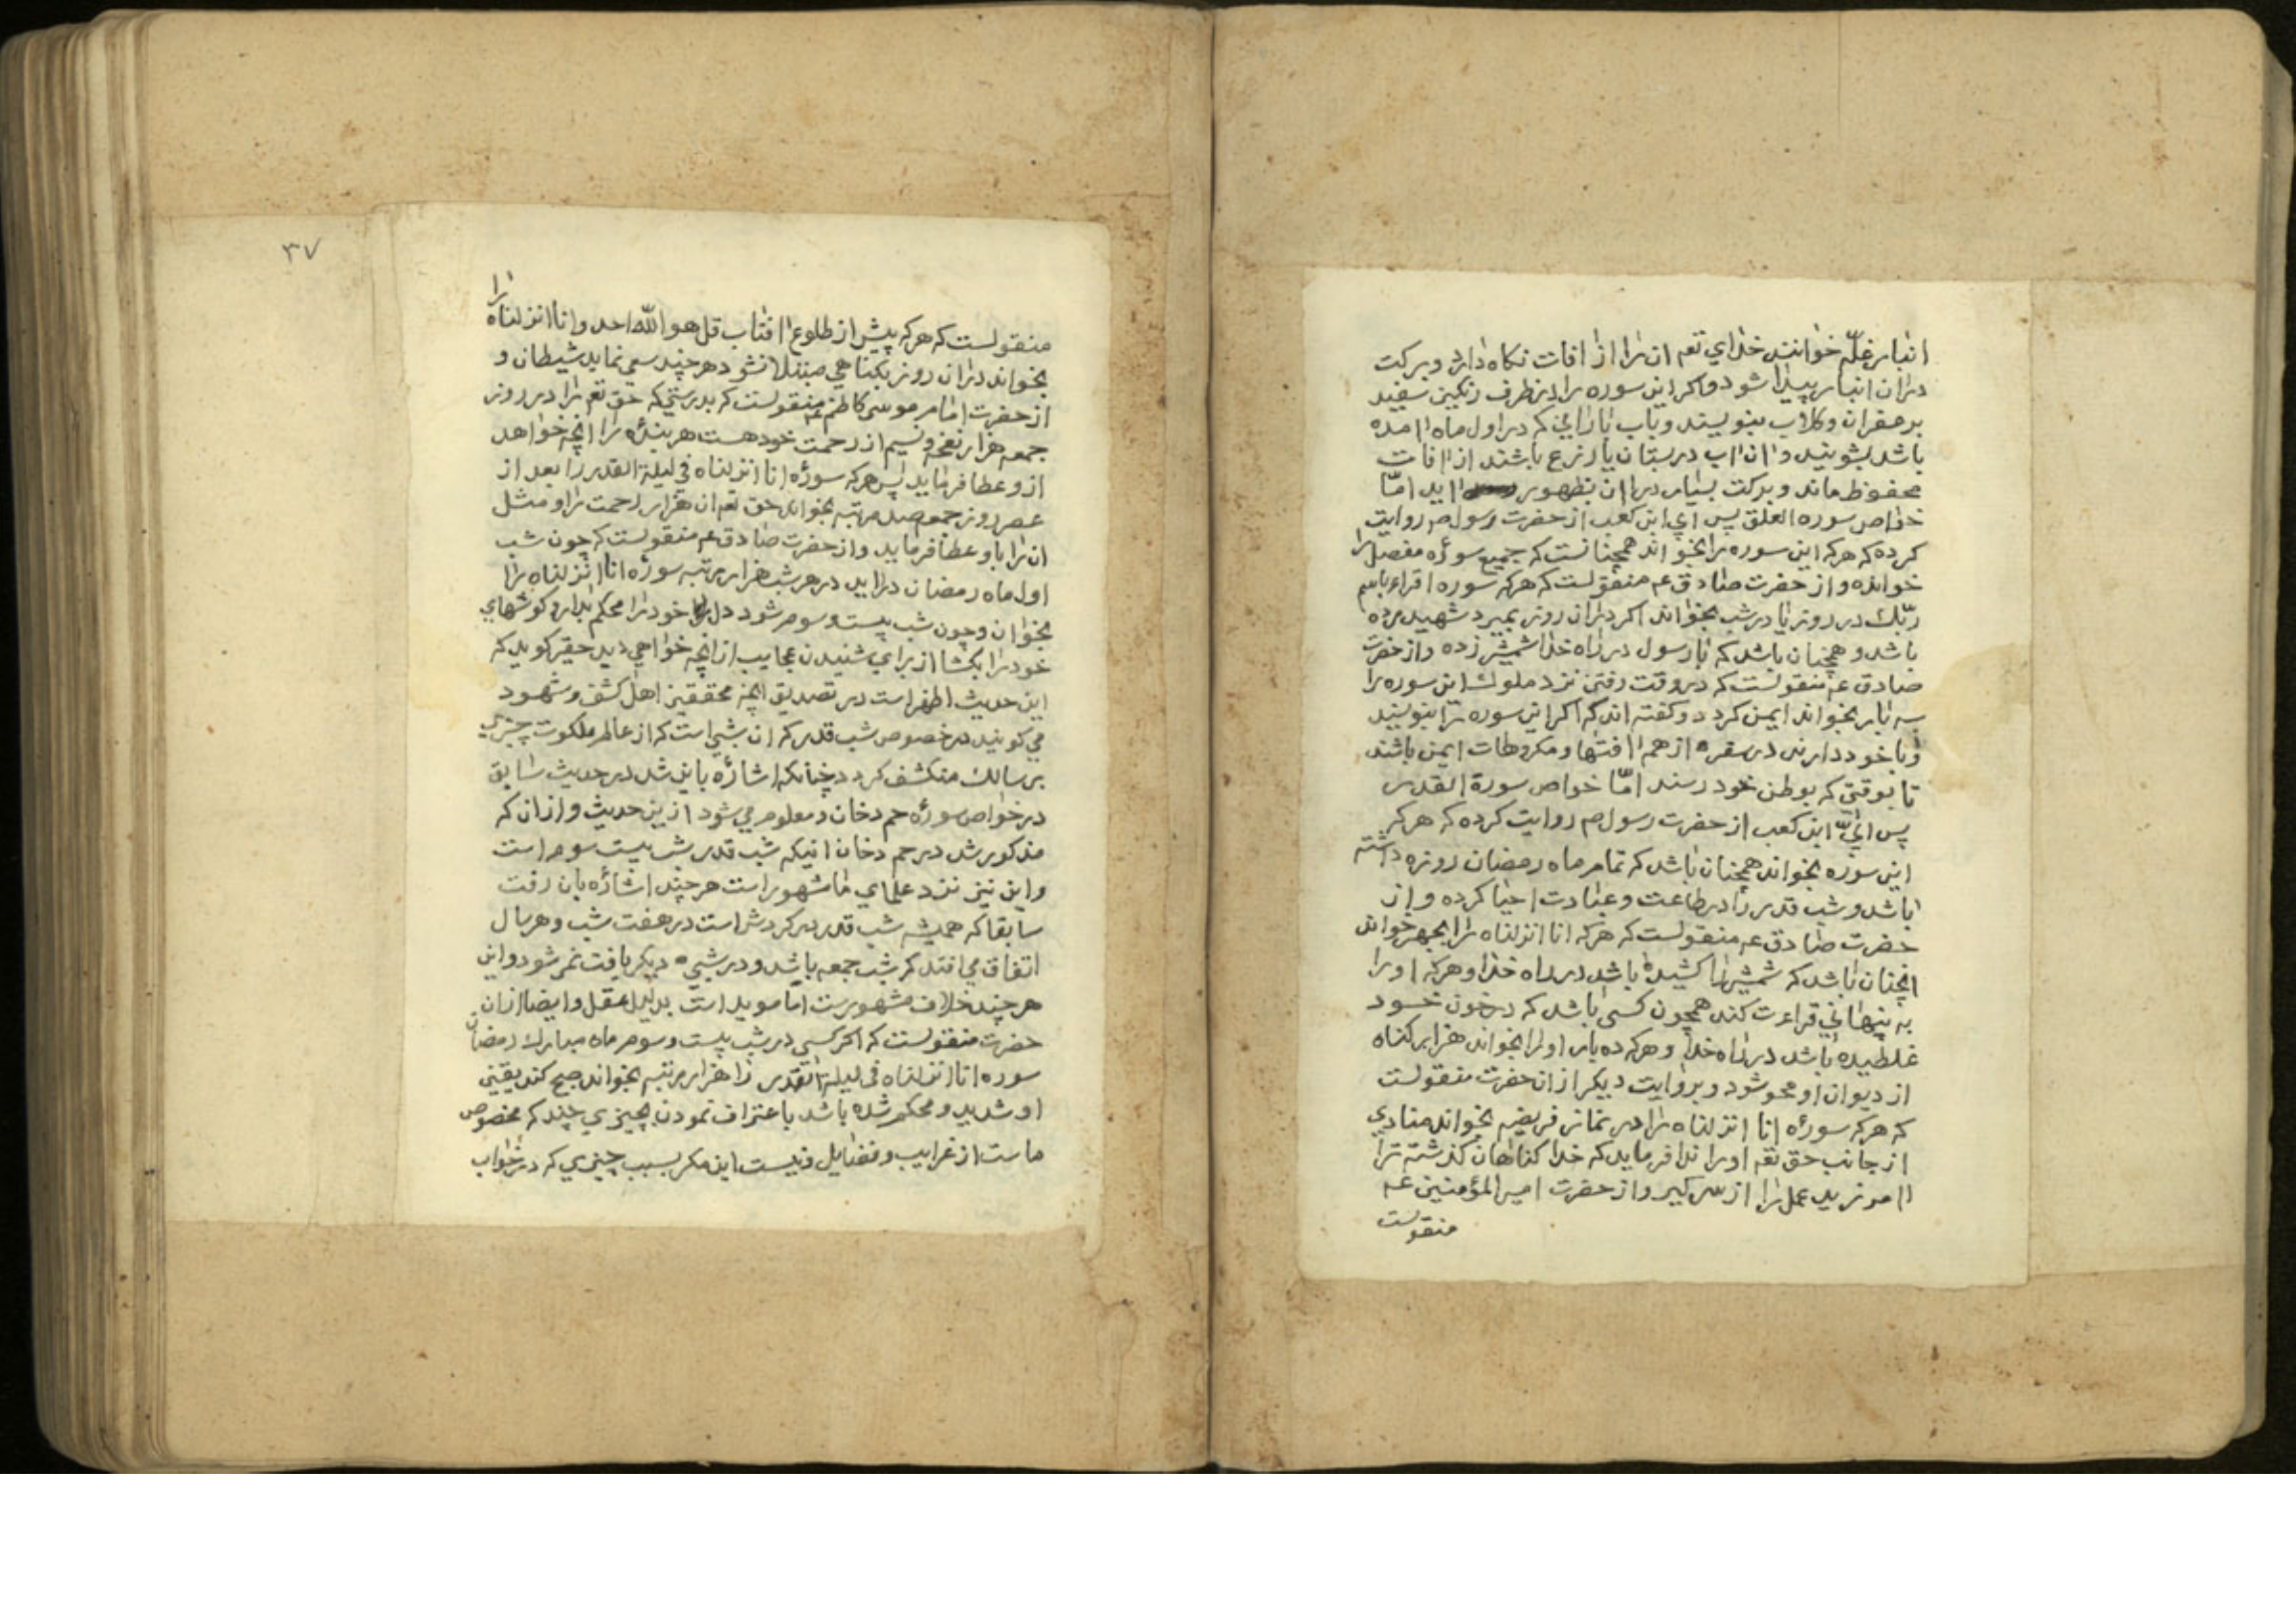 انبار غلّه خوانند خدای تعم ان را از افات نکاه دارد و برکت
دران انبار پیدا شود واکر این سوره را در ظرف رنکین سفید
بزعفران وکلاب بنویسند وباب بارانی که در اول ماه امده
باشد بشویند وان اب در بستان یا زرع باشند از افات
محفوظ ماند وبرکت بسیار دران بظهور اید امّا
خواص سوره العلق پس ابی ابن کعب از حضرت رسول ص روایت
کرده که هرکه این سوره را بخواند همچنانست که جمیع سوره مفصل را
خوانده واز حضرت صادق عم منقولست که هرکه سوره اقراء باسم
ربّک در روز یا در شب بخواند اکر دران روز بمیرد شهید مرده
باشد وهمچنان باشد که با رسول در راه خدا شمشیر زده واز حضرت
صادق عم منقولست که در وقت رفتن نزد ملوک این سوره را
سه بار بخواند ایمن کردد وکفته اند که اکر این سوره را بنویسند
وبا خود دارند در سفر از همه افتها ومکروهات ایمن باشند
تا بوقتی که بوطن خود رسند امّا خواص سورة القدر
پس ابیّ ابن کعب از حضرت رسول ص روایت کرده که هرکه
این سوره بخواند همچنان باشد که تمام ماه رمضان روزه داشته
باشد وشب قدر را در طاعت وعبادت احیا کرده واز
حضرت صادق عم منقولست که هرکه انا انزلناه را بجهر خواند
انچنان باشد که شمشیر را کشیده باشد در راه خدا وهرکه او را
به پنهانی قراءت کند همچون کسی باشد که در خون خود
غلطیده باشد در راه خدا وهرکه ده بار او را بخواند هزار کناه
از دیوان او محو شود وبروایت دیکر از ان حضرت منقولست
که هرکه سوره انا انزلناه را در نماز فریضه بخواند منادی
از جانب حق تعم او را ندا فرماید که خدا کناهان کذشته ترا
امرزید عمل را از سر کیر واز حضرت امیر المؤمنین عم
منقولست
۳۷
منقولست که هرکه پیش از طلوع افتاب قل هو الله احد وانا انزلناه را
بخواند دران روز بکناهی مبتلا نشود هرچند سعی نماید شیطان و
از حضرت امام موسی کاظم عم منقولست که بدرستی که حق تعم را در روز
جمعه هزار نفحه ونسیم از رحمت خود هست هر بنده را انچه خواهد
ازو عطا فرماید پس هرکه سوره انا انزلناه فی لیلة القدر را بعد از
عصر روز جمعه صد مرتبه بخواند حق تعم ان هزار رحمت را ومثل
ان را باو عطا فرماید واز حضرت صادق عم منقولست که چون شب
اول ماه رمضان دراید در هر شب هزار مرتبه سوره انا انزلناه را
بخوان وچون شب بیست وسوم شود دل خود را محکم بدار وکوشهای
خود را بکشا از برای شنیدن عجایب از انچه خواهی دید حقیر کوید که
این حدیث اظهر است در تصدیق انچه محققین اهل کشف وشهود
می کویند در خصوص شب قدر که ان شبی است که از عالم ملکوت چیزی
بر سالک منکشف کردد چنانکه اشاره باین شد در حدیث سابق
در خواص سوره حم دخان ومعلوم می شود ازین حدیث وازان که
مذکور شد در حم دخان انیکه شب قدر شب بیست سوم است
واین نیز نزد علمای ما مشهور است هرچند اشاره بان رفت
سابقا که همیشه شب قدر در کردش است در هفت شب وهر سال
اتفاق می افتد که شب جمعه باشد ودر شبی دیکر یافت نمی شود واین
هرچند خلاف مشهورست اما موید است بدلیل عقل وایضا ازان
حضرت منقولست که اکر کسی در شب بیست وسوم ماه مبارک رمضان
سوره انا انزلناه فی لیلة القدر را هزار مرتبه بخواند صبح کند یقین
او شدید ومحکم شده باشد باعتراف نمودن بچیزی چند که مخصوص
ماست از غرایب وفضایل ونیست این مکر بسبب چیزی که در خواب